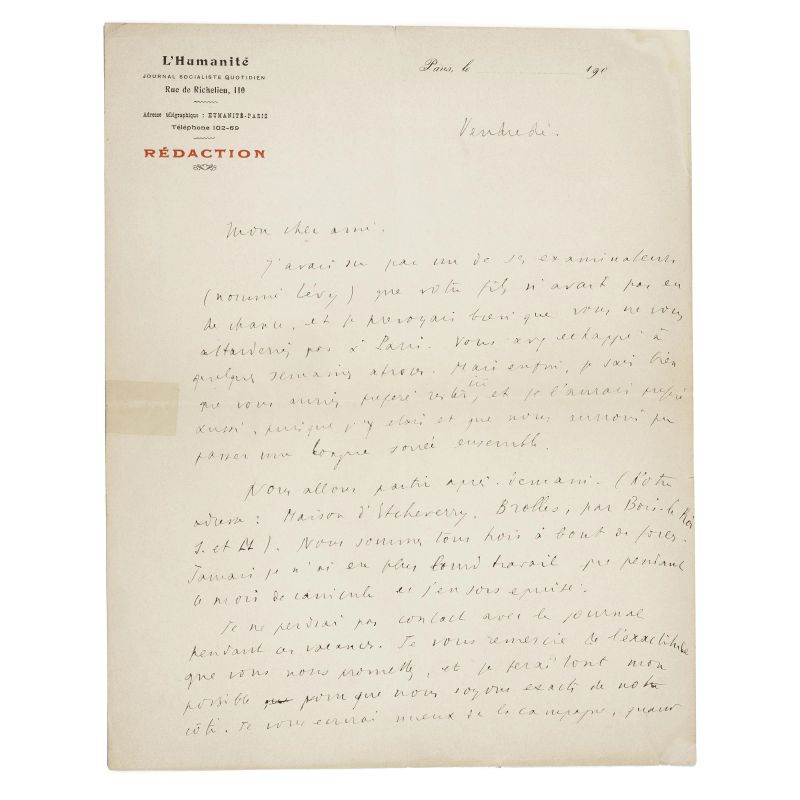 L'Humanité
JOURNAL SOCIALISTE QUOTIDIEN
Rue de Richelieu, 110
Adresse télégraphique : HUMANITÉ-PARIS
Téléphone 102-69
RÉDACTION
Paris, le 190
Vendredi.
Mon cher ami.
J'avais su par un de ses examinateurs
(nommé Lévy) que votre fils n'avait pas eu
de chance, et je prévoyais bien que vous ne vous
attarderiez pas à Paris. Vous avez échappé à
quelques semaines atroces. Mais enfin, je sais bien
que vous auriez préféré rester ici, et je l'aurais préféré
aussi, puisque j'y étais et que nous aurions pu
passer une longue soirée ensemble.
Nous allons partir après-demain. (Notre
adresse : Maison d'Etcheverry, Brolles, par Bois-le Roi
S. et M). Nous sommes tous trois à bout de forces.
Jamais je n'ai eu plus lourd travail que pendant
ce mois de canicule et j'en sors épuisé.
Je ne perdrai pas contact avec le journal
pendant ces vacances. Je vous remercie de l'exactitude
que vous nous promettez, et je ferai tout mon
possible pour que nous soyons exacts de notre
côté. Je vous écrirai mieux de la campagne, quand